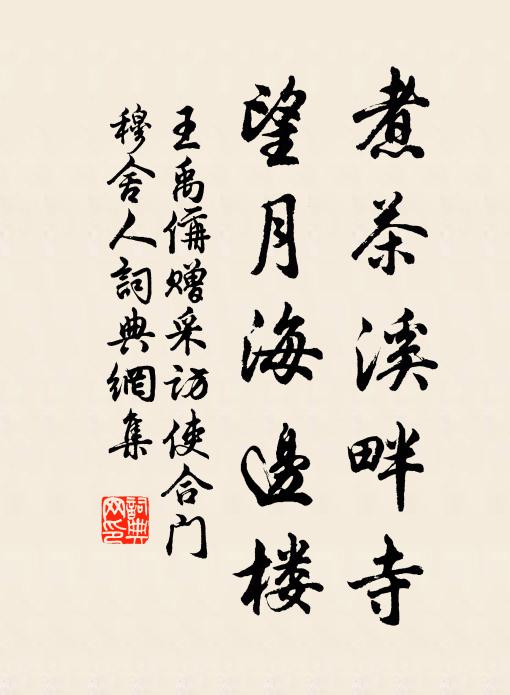 煮茶溪畔寺
望月海邊楼
王禹偁赠采访使合门
穆舍人詞典網集
詞典
网印